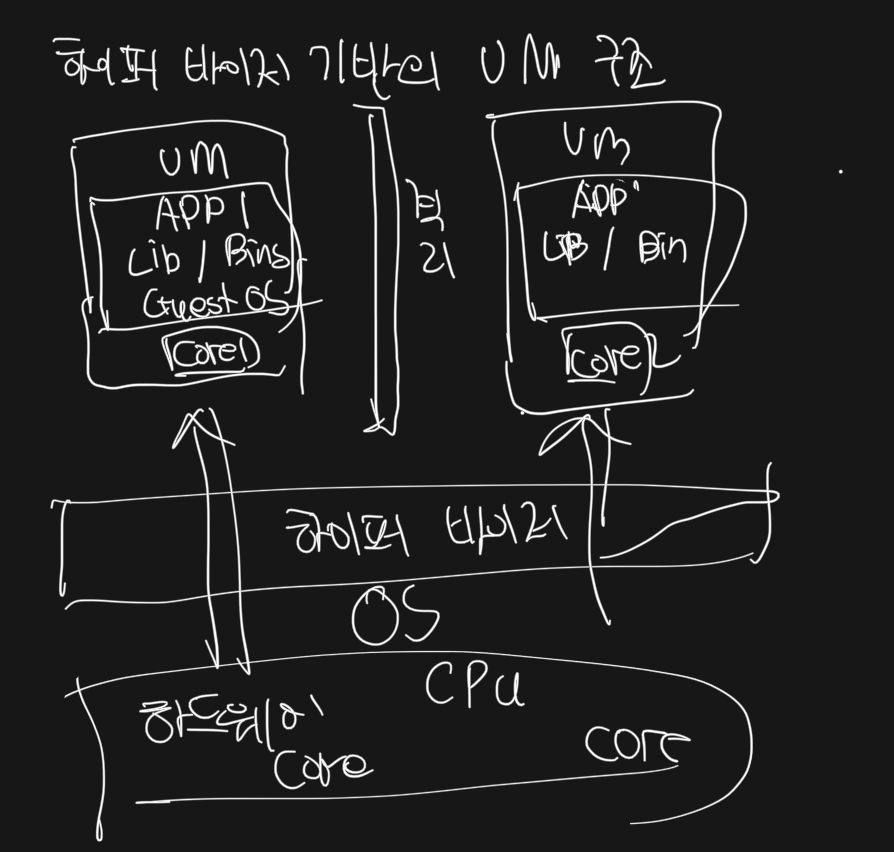 하이퍼 바이저 기반의 VM 구조
VM
APP 1
Lib / Bins
Guest OS
Core1
격리
VM
APP
LIB / Bin
Core 2
하이퍼 바이저
OS
CPU
하드웨어
Core
Core